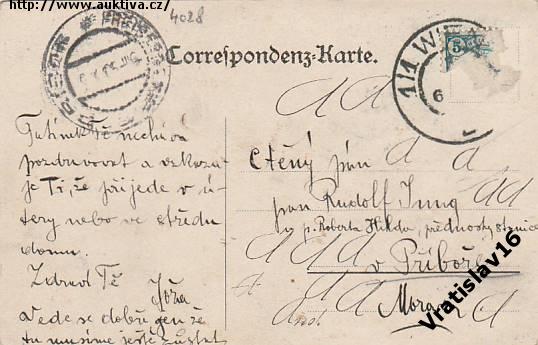 http://www.auktiva.cz/
4028
Correspondenz-Karte.
1/1 WI
5
6
Tatínek Tě nechává
pozdravovat a vzkazu-
je Ti, že přijede v ú-
terý nebo ve středu
domů.
Zdraví Tě
Jóža
Vede se dobře jen že
tu musíme ještě zůstat
Ctěný pán
pan Rudolf Jung
u p. Roberta Hikla, přednosty stanice
v Příboře
Morava
Vratislav16